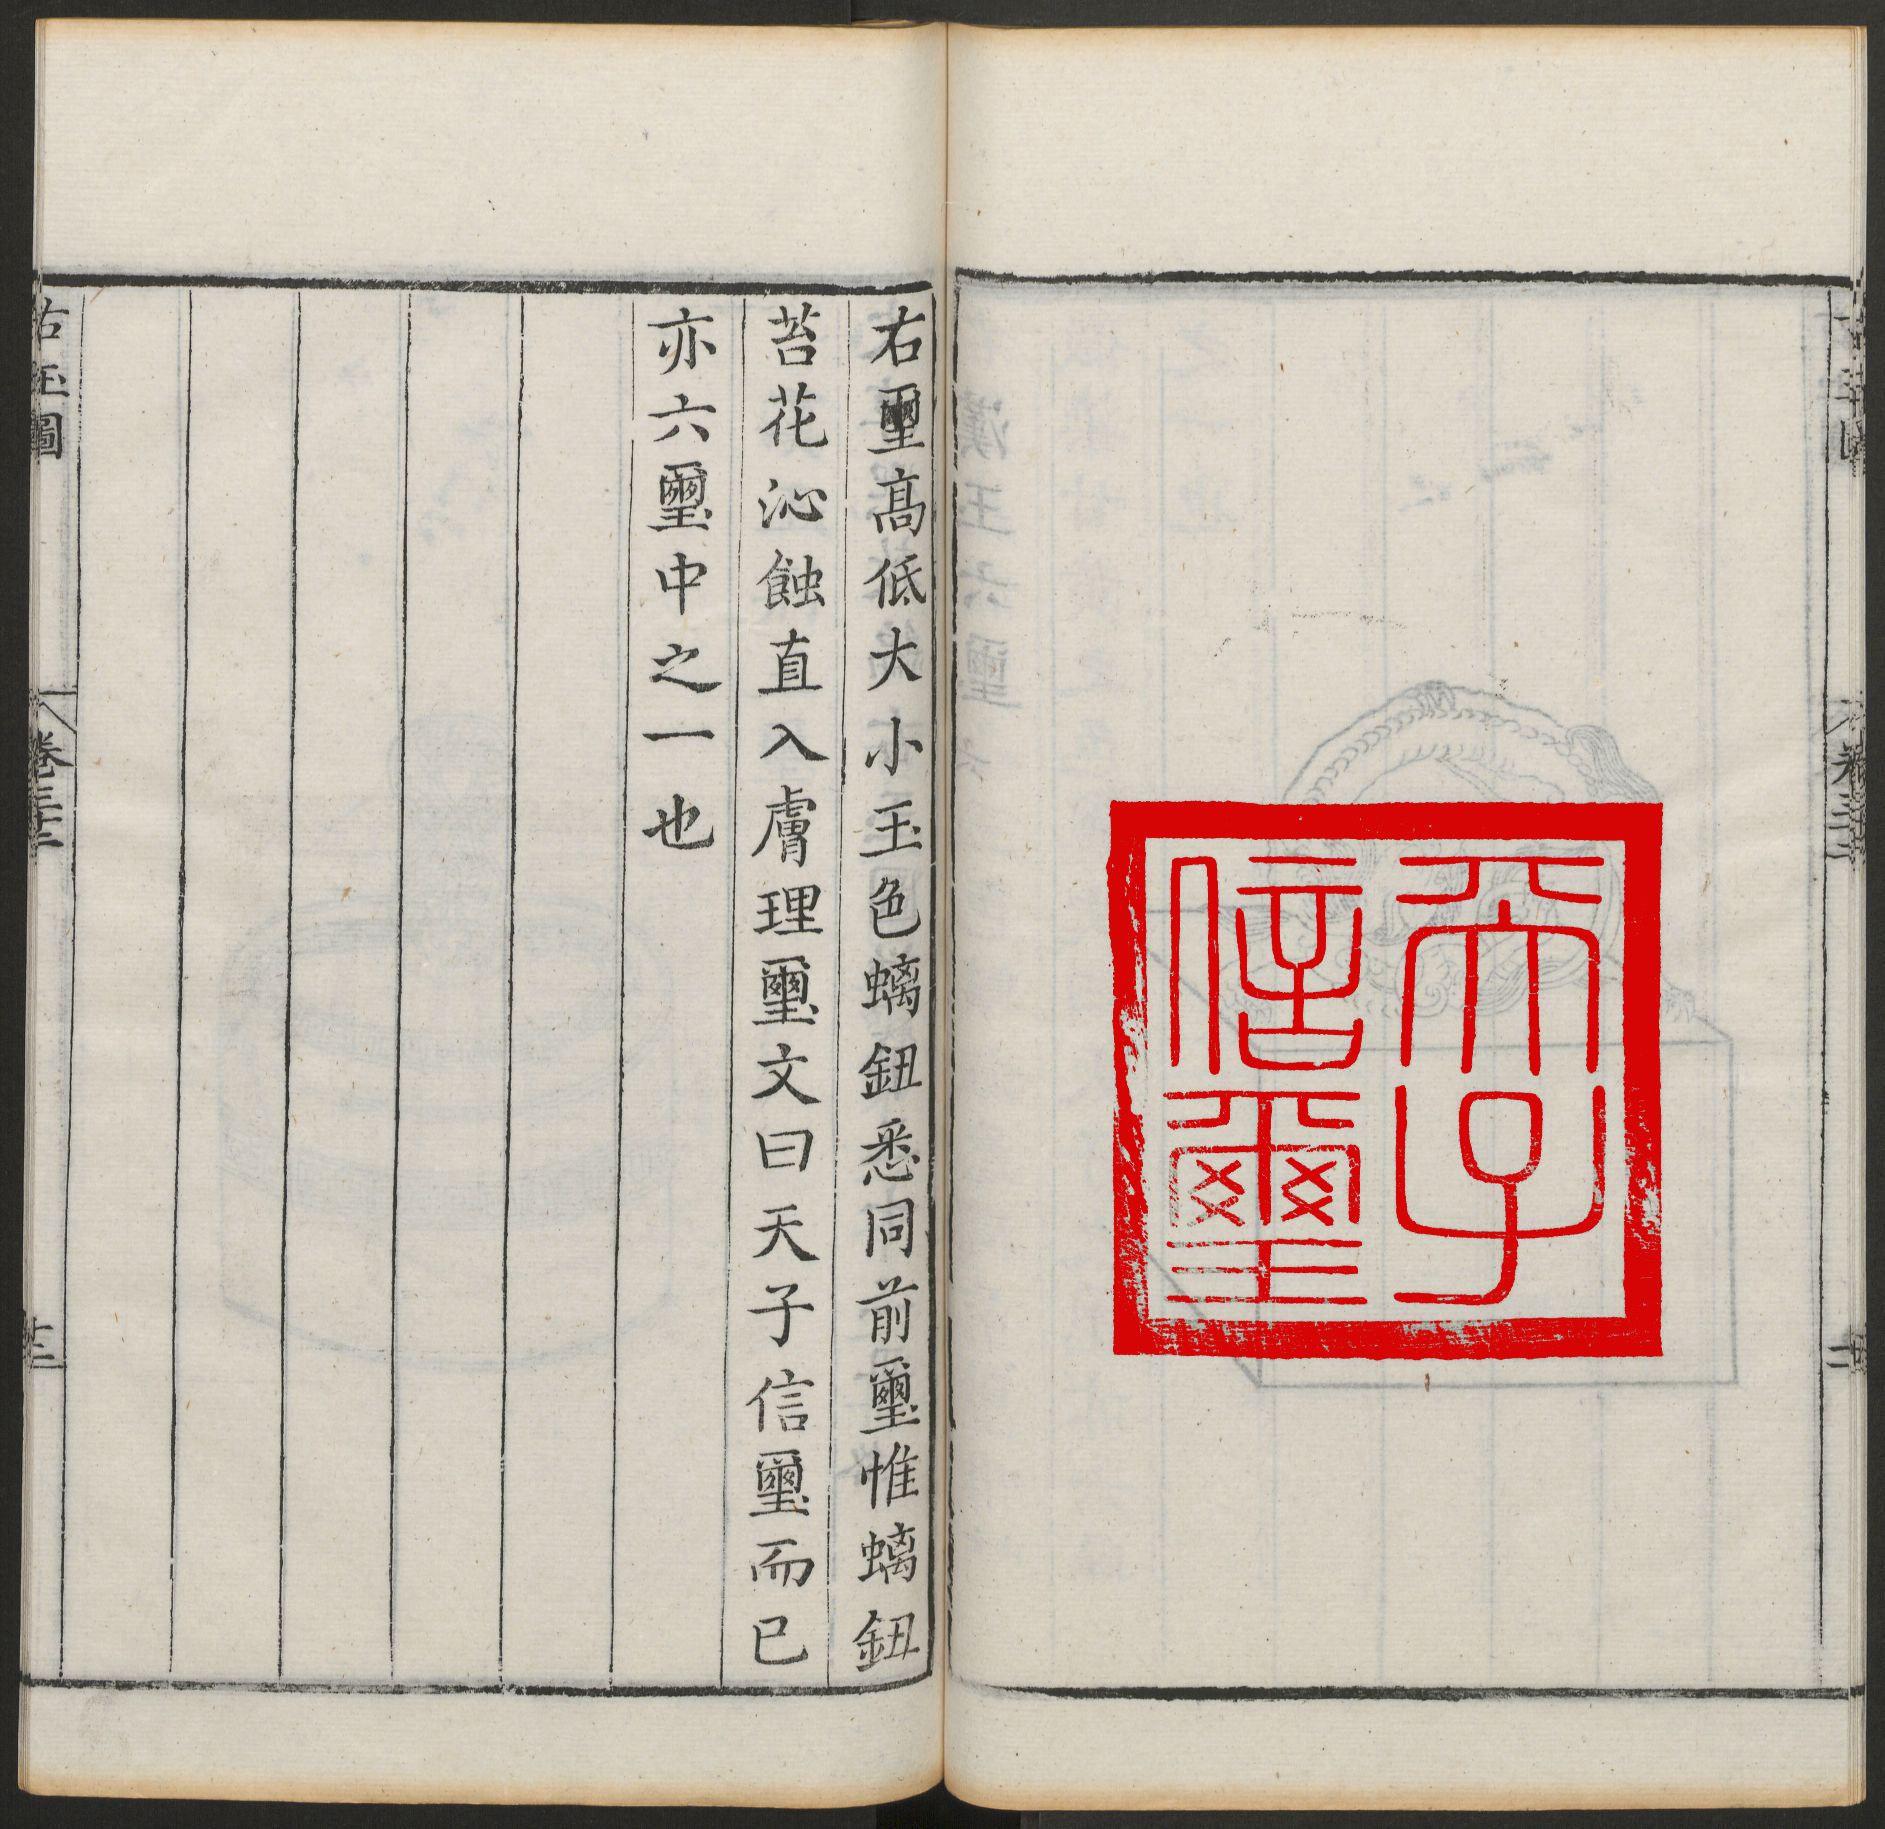 天子
信璽
右璽高低大小玉色螭鈕悉同前璽惟螭鈕
苔花沁蝕直入膚理璽文曰天子信璽而已
亦六璽中之一也
古玉圖
卷三十二